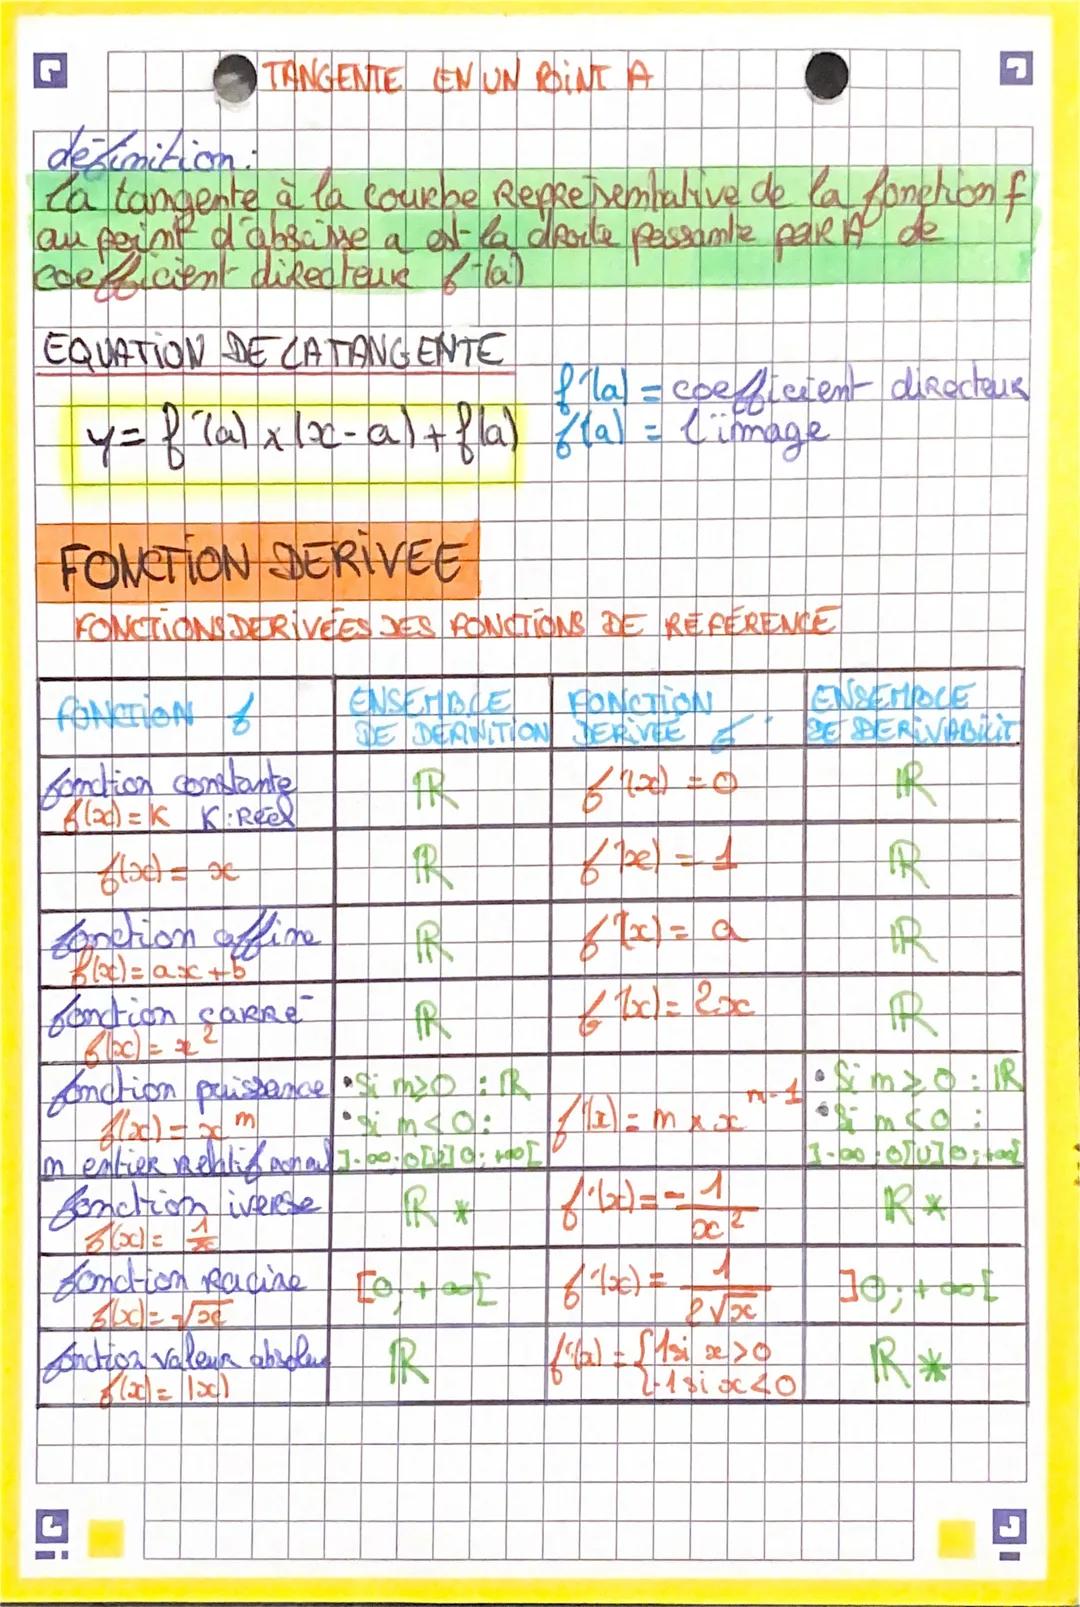 TANGENTE EN UN POINT A
définition :
La tangente à la courbe représentative de la fonction f
au point d'abscisse a est la droite passante par A de
coefficient directeur f'(a)
EQUATION DE LA TANGENTE
f'(a) = coefficient directeur
y = f'(a) x (x-a) + f(a)
f(a) = l'image
FONCTION DERIVEE
FONCTIONS DERIVÉES DES FONCTIONS DE RÉFÉRENCE
FONCTION f | ENSEMBLE DE DEFINITION | FONCTION DERIVEE f' | ENSEMBLE DE DERIVABILIT
fonction constante f(x) = K K : Réel | ℝ | f'(x) = 0 | ℝ
f(x) = x | ℝ | f'(x) = 1 | ℝ
fonction affine f(x) = ax + b | ℝ | f'(x) = a | ℝ
fonction carré f(x) = x² | ℝ | f'(x) = 2x | ℝ
fonction puissance f(x) = xⁿ n entier relatif non nul | • Si n≥0 : ℝ • si n<0 : ]-∞;0[U]0;+∞[ | f'(x) = n x xⁿ⁻¹ | • Si n≥0 : ℝ • Si n<0 : ]-∞;0[U]0;+∞[
fonction iverse f(x) = 1/x | ℝ* | f'(x) = -1/x² | ℝ*
fonction Racine f(x) = √x | [0;+∞[ | f'(x) = 1/2√x | ]0;+∞[
fonction valeur absolue f(x) = |x| | ℝ | f'(x) = {1 si x>0 {-1 si x<0 | ℝ*